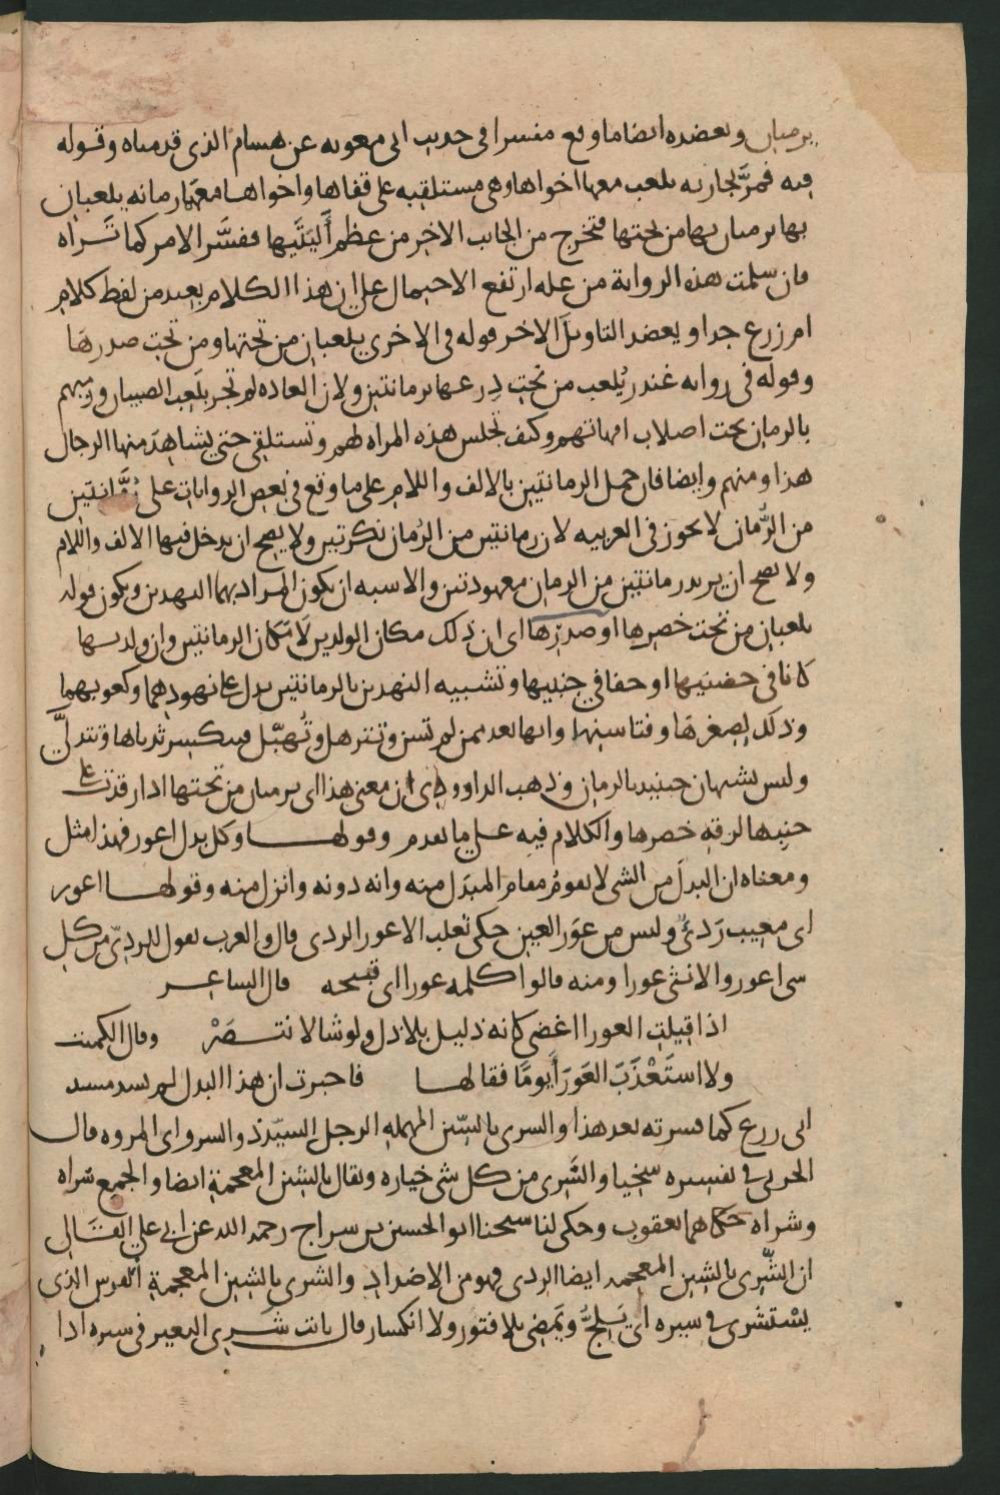 يرميان ويعضده ايضا ما وقع مفسرا في حديث ابى معوية عن هشام الذى قدمناه وقوله
فيه فمر بجارية يلعب معها اخواها وهى مستلقية على قفاها واخواها معهما رمانة يلعبان
بها يرميان بها من تحتها فتخرج من الجانب الاخر من عظم أليتيها ففسر الامر كما تراه
فان سلمت هذه الرواية من علة ارتفع الاحتمال على ان هذا الكلام بعيد من لفظ كلام
ام زرع جدا ويعضد التاويل الاخر قوله فى الاخرى يلعبان من تحتها ومن تحت صدرها
وقوله فى رواية غندر يلعب من تحت درعها برمانتين ولان العادة لم تجر بلعب الصبيان ورميهم
بالرمان تحت اصلاب امهاتهم وكيف تجلس هذه المراة لهم وتستلقى حتى يشاهد منها الرجال
هذا ومنهم وايضا فان حمل الرمانتين بالالف واللام على ما وقع فى بعض الروايات على رمانتين
من الرمان لا يجوز فى العربية لان رمانتين من الرمان نكرتين ولا يصح ان يدخل فيها الالف واللام
ولا يصح ان يريد رمانتين من الرمان معهودتين والاشبه ان يكون المراد بهما النهدين ويكون قوله
يلعبان من تحت خصرها او صدرها اى ان ذلك مكان الولدين لا مكان الرمانتين وان ولديها
كانا فى حضنيها او حفافي جنبيها وتشبيه النهدين بالرمانتين يدل على نهودهما وكعوبهما
وذلك لصغرها وفتا سنها وانها بعد ممن لم تسن وتترهل وتهبل فينكسر ثدياها وتتدلى
وليس يشبهان حينئذ بالرمان وذهب الداوودى ان معنى هذا اى يرميان من تحتها اذا رقدت على
جنبها لرقة خصرها والكلام فيه على ما تقدم وقولها وكل بدل اعور فهذا مثل
ومعناه ان البدل من الشى لا يقوم مقام المبدل منه وانه دونه وانزل منه وقولها اعور
اى معيب ردى وليس من عور العين حكى ثعلب الاعور الردى قال والعرب تقول للردى من كل
شى اعور والانثى عورا ومنه قالوا كلمة عورا اى قبيحة قال الشاعر
اذا قيلت العورا اغضى كانه ذليل بلا ذل ولو شا لانتصر وقال الكميت
ولا استعذب العورا يوما فقالها فاخبرت ان هذا البدل لم يسد مسد
ابى زرع كما فسرته بعد هذا والسرى بالسين المهملة الرجل السيد ذو السرو اى المروة قال
الحربى فى تفسيره سخيا والسرى من كل شى خياره ويقال بالشين المعجمة ايضا والجمع سراة
وشراة حكاهما يعقوب وحكى لنا شيخنا ابو الحسين بن سراج رحمه الله عن ابى على القالى
ان الشرى بالشين المعجمة ايضا الردى فهو من الاضداد والشرى بالشين المعجمة الفرس الذى
يستشرى فى سيره اى يلج ويمضى بلا فتور ولا انكسار قال ثابت شرى البعير فى سيره اذا